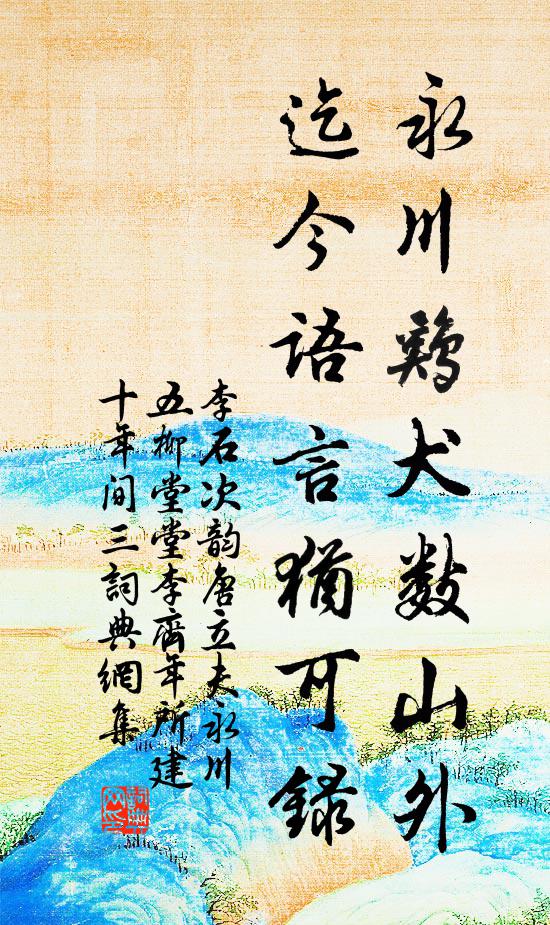 永川鷄犬數山外
迄今語言猶可錄
李石次韵唐立夫永川
五柳堂堂李齊年所建
十年间三詞典網集